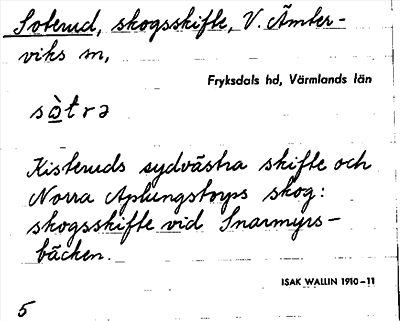 Soterud, skogsskifte, V. Ämter-
viks sn,
Fryksdals hd, Värmlands län
sòtrə
Kisteruds sydvästra skifte och
Norra Aplungstorps skog:
skogsskifte vid Snarmyrs-
bäcken.
ISAK WALLIN 1910-11
5